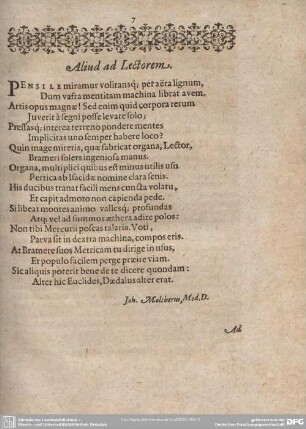 7
Aliud ad Lectorem.
PENSILE miramur volitansq́; per aëra lignum,
Dum vafra mentitam machina librat avem.
Artis opus magnæ! Sed enim quid corpora rerum
Juverit à segni posse levare solo;
Pressasq́; interea terreno pondere mentes
Implicitas uno semper habere loco?
Quin mage mireris, quæ fabricat organa, Lector,
Brameri solers ingeniosa manus.
Organa, multiplici quibus est minus utilis usu
Pertica ab Isacidæ nomine clara senis.
His ducibus tranat facili mens cuncta volatu,
Et capit admoto non capienda pede.
Si libeat montes animo vallesq́; profundas
Atq́; vel ad summos æthera adire polos:
Non tibi Mercurii poscas talaria. Voti,
Parva sit in dextra machina, compos eris.
At Bramere tuos Metricam tu dirige in usus,
Et populo facilem perge præire viam.
Sic aliquis poterit bene de te dicere quondam:
Alter hic Euclides, Dædalus alter erat.
Joh. Melcherus, Med. D.
Ad